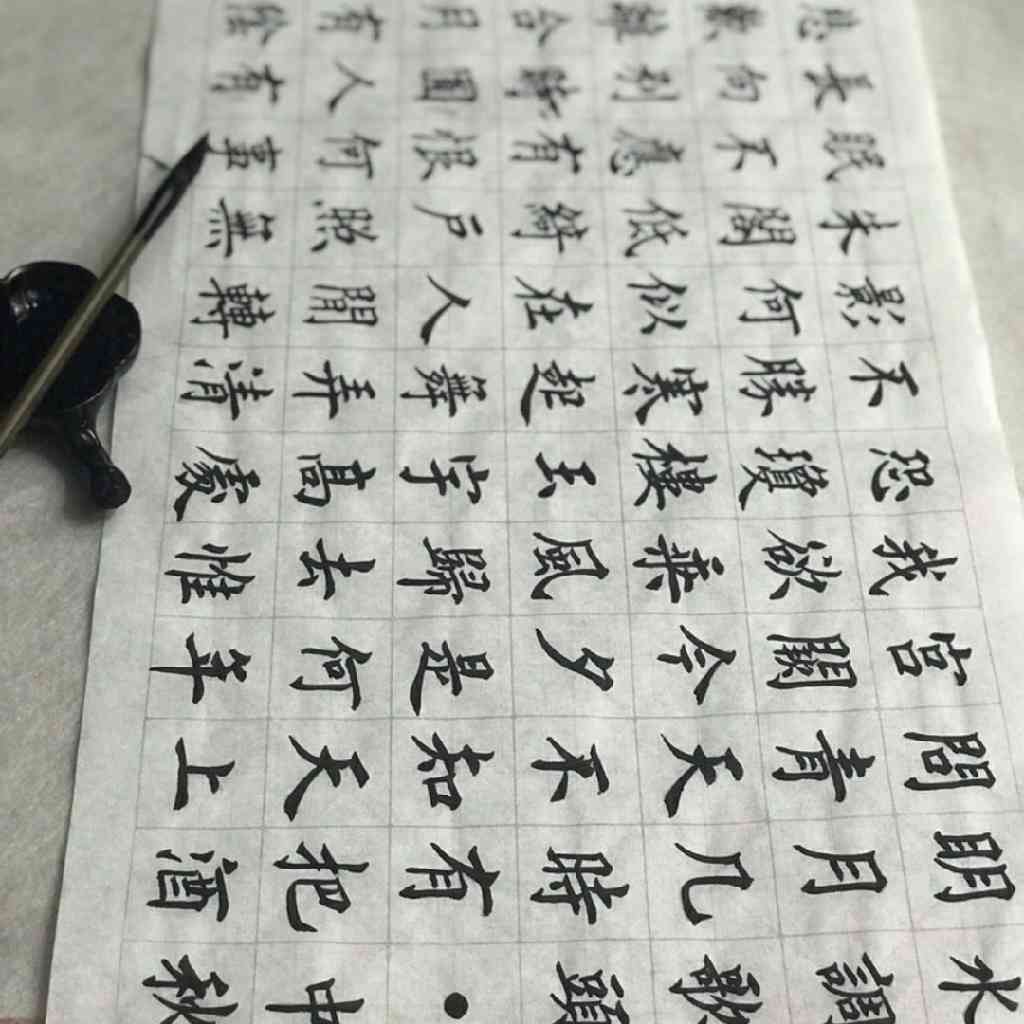 水調歌頭•中秋
明月几時有把酒
問青天不知天上
宮闕今夕是何年
我欲乘風歸去惟
恐瓊樓玉宇高處
不勝寒起舞弄清
影何似在人間轉
朱閣低綺戶照無
眠不應有恨何事
長向別時圓人有
悲歡離合月有陰